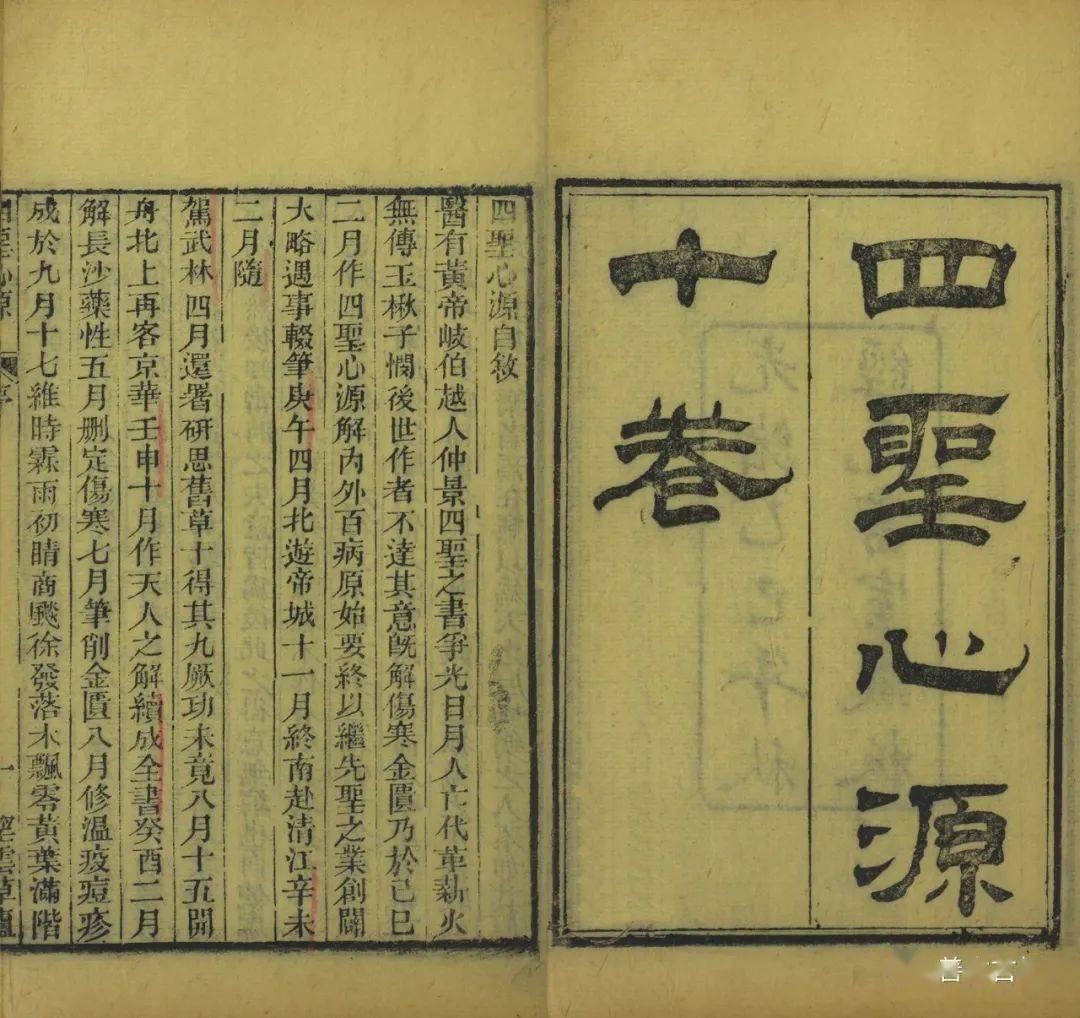 四聖心源
十卷
四聖心源自敘
醫有黃帝岐伯越人仲景四聖之書爭光日月人亡代革薪火
無傳玉楸子憫後世作者不達其意既解傷寒金匱乃於己巳
二月作四聖心源解內外百病原始要終以繼先聖之業創闢
大略遇事輟筆庚午四月北遊帝城十一月終南赴清江辛未
二月隨
駕武林四月還署研思舊草十得其九厥功未竟八月十五開
舟北上再客京華壬申十月作天人之解續成全書癸酉二月
解長沙藥性五月刪定傷寒七月筆削金匱八月修溫疫痘疹
成於九月十七維時霖雨初晴商飈徐發落木飄零黃葉滿階
四聖心源
序
一
善